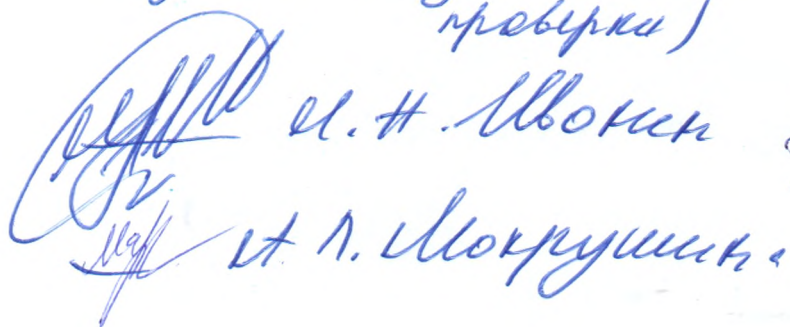 проверки)
И. Н. Ивонин
А. Л. Мокрушин